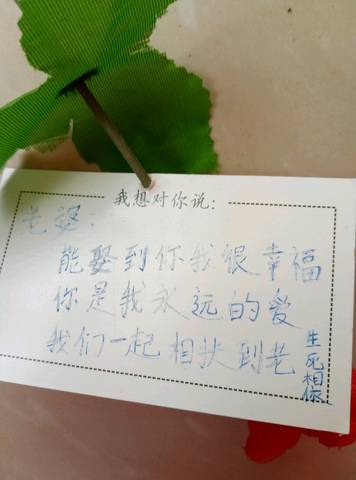 我想对你说:
老婆:
能娶到你我很幸福
你是我永远的爱
我们一起相扶到老
生死相依